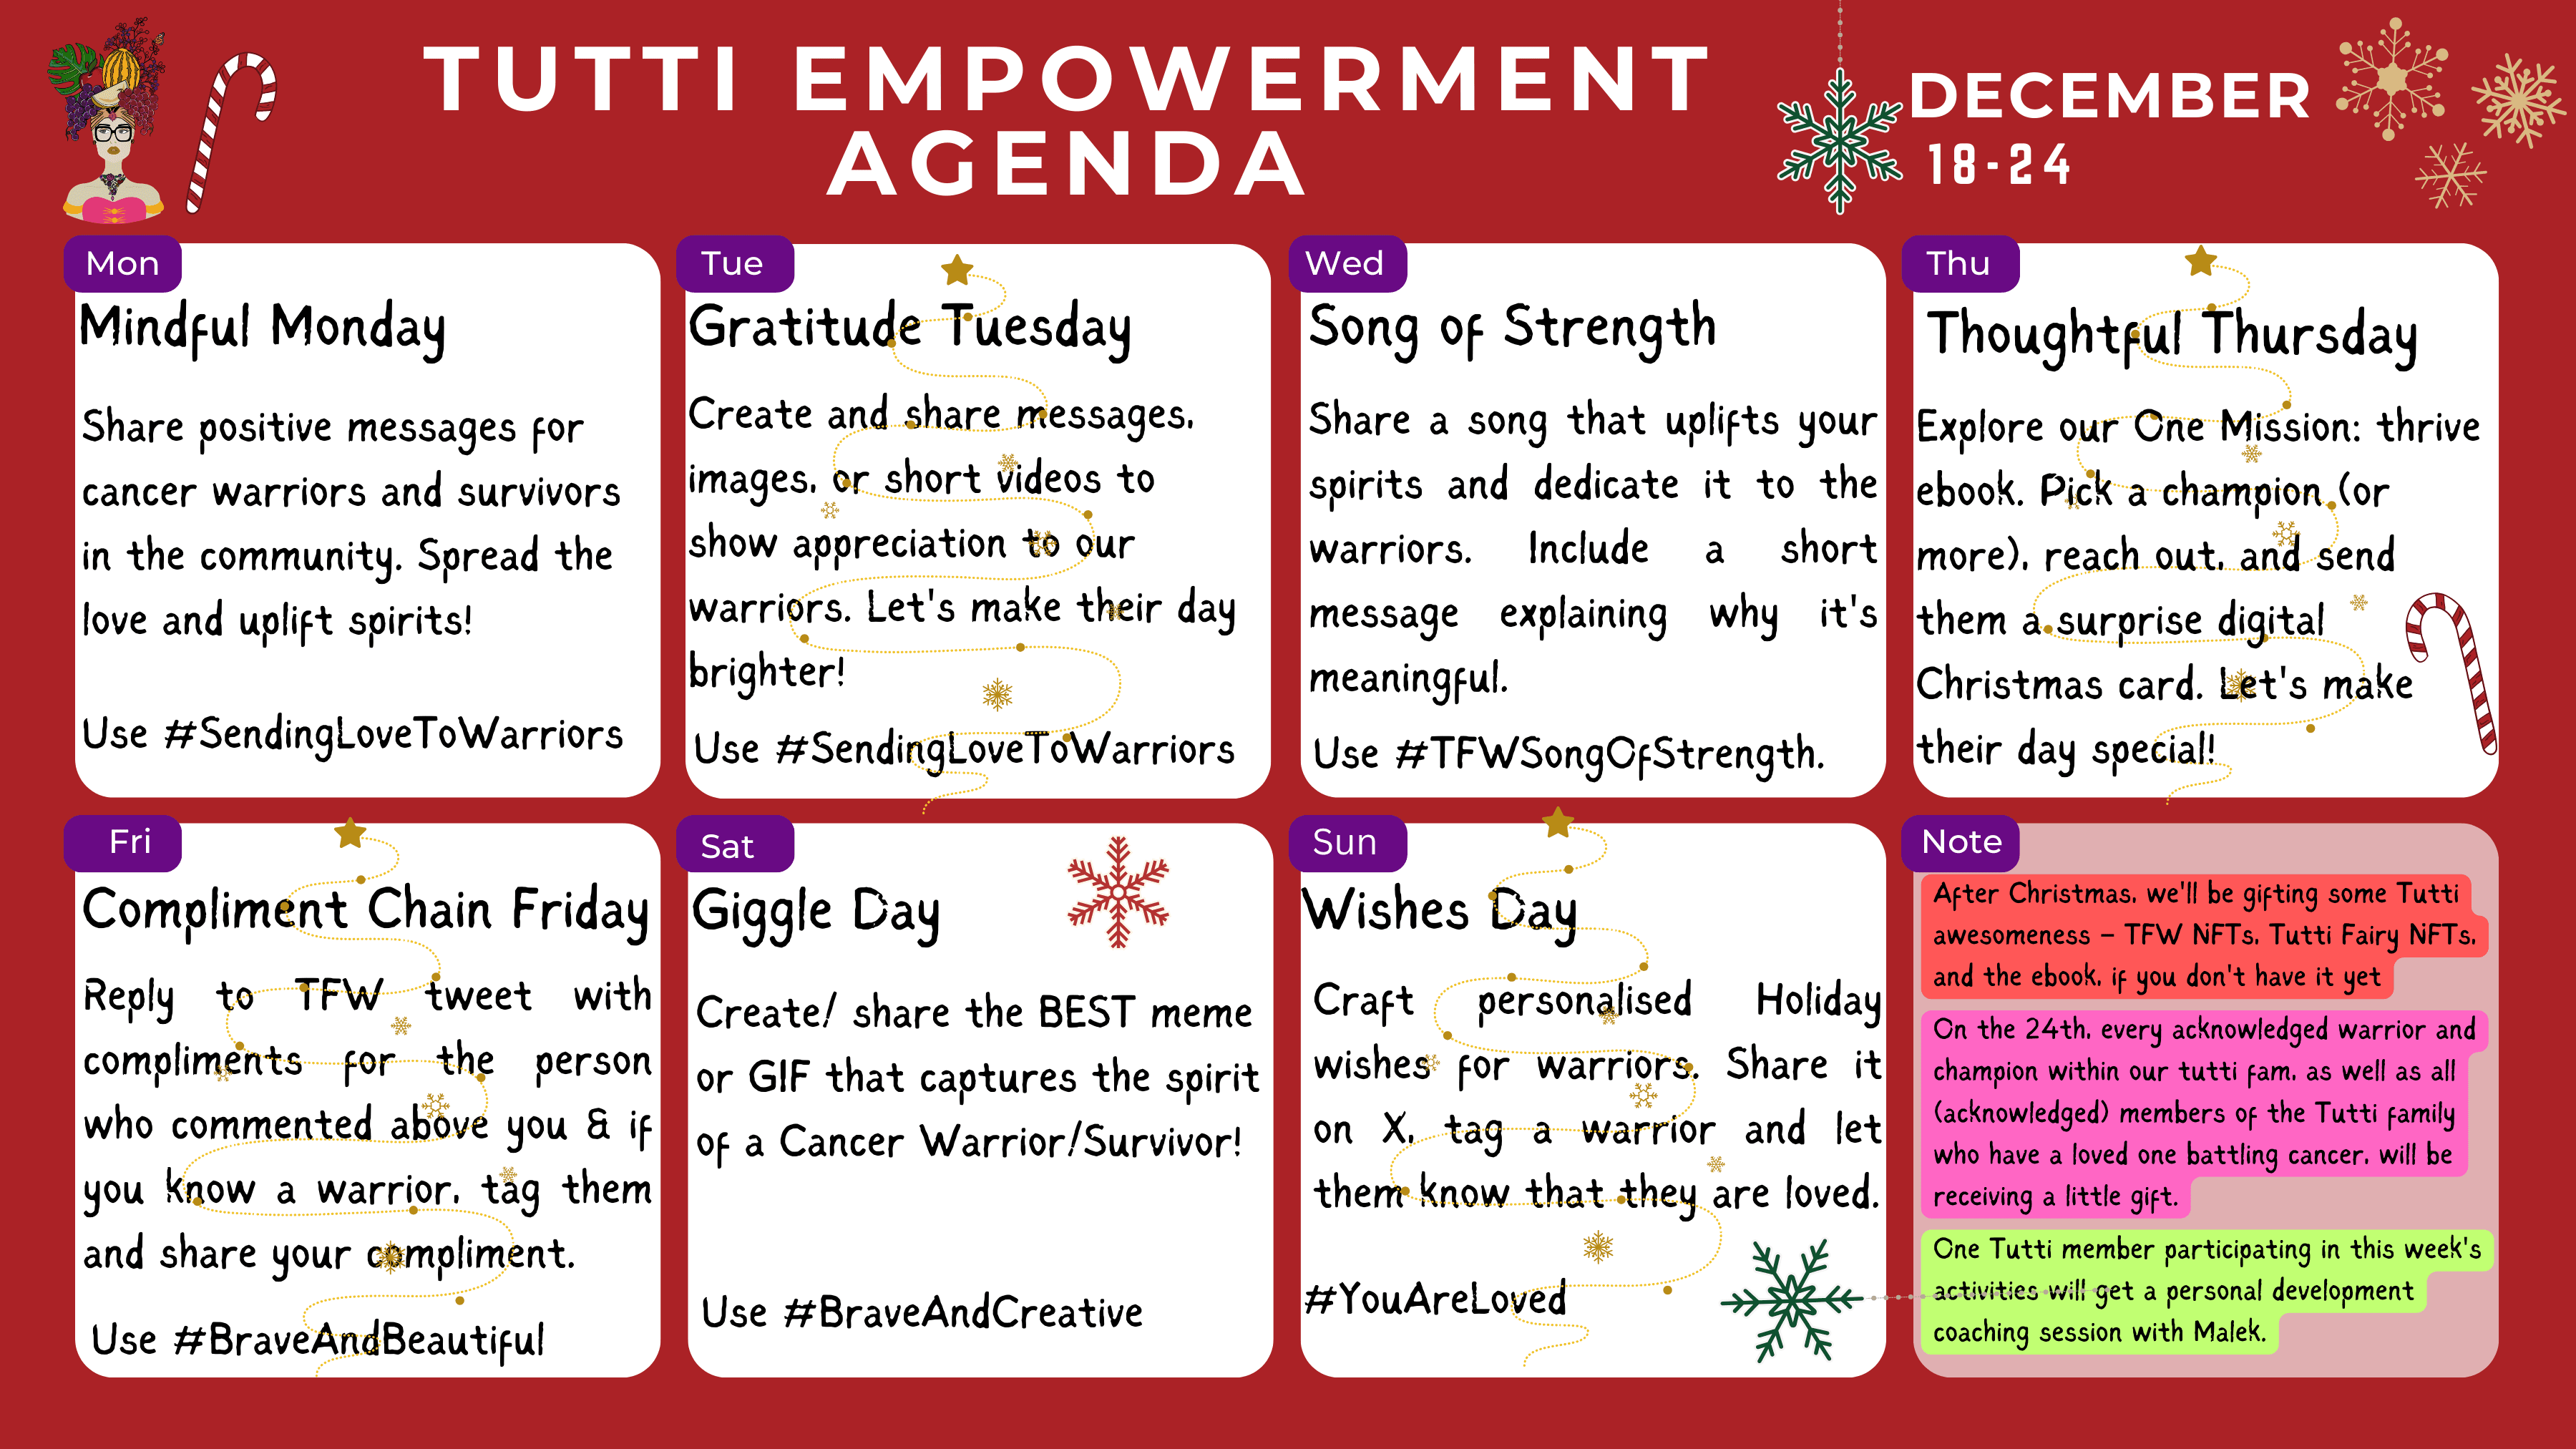 TUTTI EMPOWERMENT
AGENDA
DECEMBER
18-24
Mon
Mindful Monday
Share positive messages for
cancer warriors and survivors
in the community. Spread the
love and uplift spirits!
Use #SendingLoveToWarriors
Tue
Gratitude Tuesday
Create and share messages,
images, or short videos to
show appreciation to our
warriors. Let's make their day
brighter!
Use #SendingLoveToWarriors
Wed
Song of Strength
Share a song that uplifts your
spirits and dedicate it to the
warriors. Include a short
message explaining why it's
meaningful.
Use #TFWSongOfStrength.
Thu
Thoughtful Thursday
Explore our One Mission: thrive
ebook. Pick a champion (or
more), reach out, and send
them a surprise digital
Christmas card. Let's make
their day special!
Fri
Compliment Chain Friday
Reply to TFW tweet with
compliments for the person
who commented above you & if
you know a warrior, tag them
and share your compliment.
Use #BraveAndBeautiful
Sat
Giggle Day
Create/ share the BEST meme
or GIF that captures the spirit
of a Cancer Warrior/Survivor!
Use #BraveAndCreative
Sun
Wishes Day
Craft personalised Holiday
wishes for warriors. Share it
on X, tag a warrior and let
them know that they are loved.
#YouAreLoved
Note
After Christmas, we'll be gifting some Tutti
awesomeness – TFW NFTs, Tutti Fairy NFTs,
and the ebook, if you don't have it yet
On the 24th, every acknowledged warrior and
champion within our tutti fam, as well as all
(acknowledged) members of the Tutti family
who have a loved one battling cancer, will be
receiving a little gift.
One Tutti member participating in this week's
activities will get a personal development
coaching session with Malek.